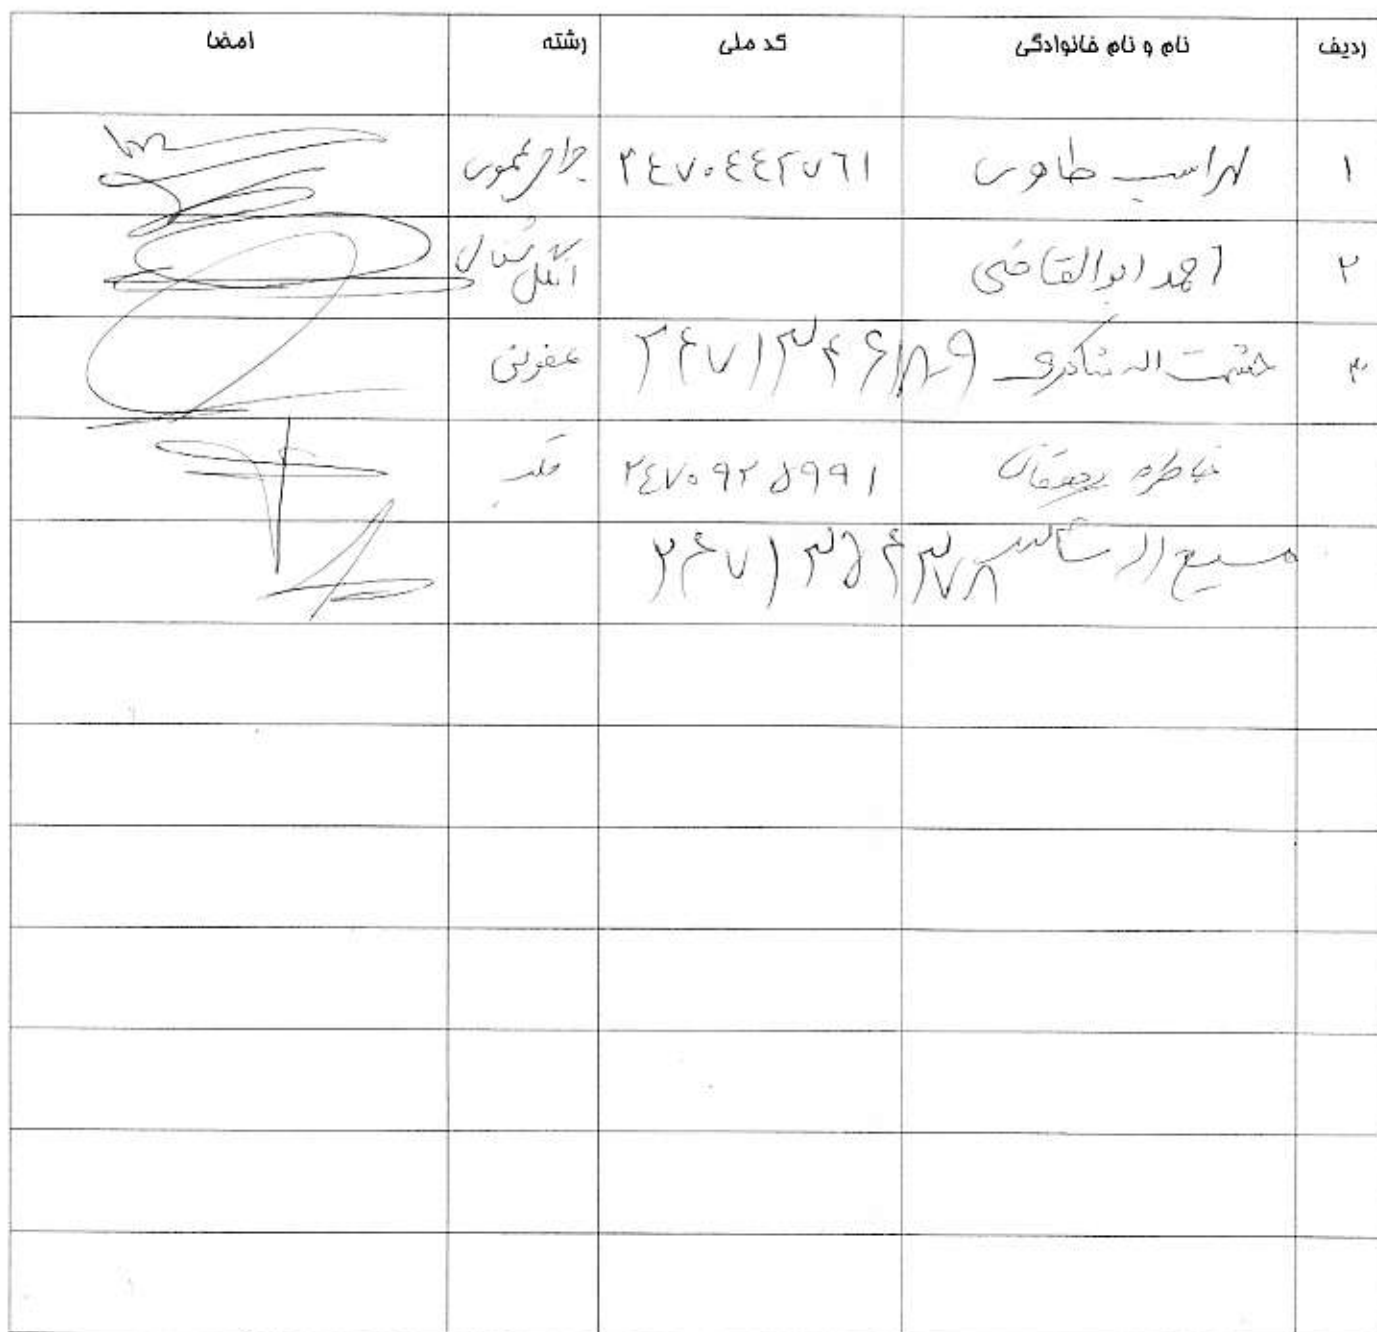 ردیف نام و نام خانوادگی کد ملی رشته امضا
۱ لهراسب طاوسی ۲٤۷۰٤٤۲۷٦۱ جراح عمومی
۲ احمد ابوالقاضی
۳ حشمت اله شاکری ۲۴۷۱۳۴۶۱۸۹ عفونی
خاطره دهقان ۲٤۷۰۹۲۵۹۹۱
مسیح اله شاکری ۲۴۷۱۳۵۴۳۷۸